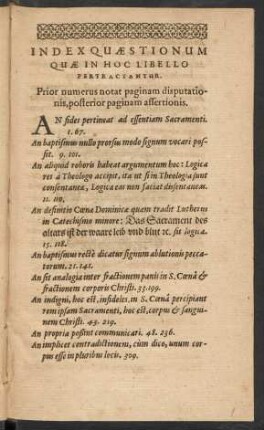 INDEX QUÆSTIONUM
QUÆ IN HOC LIBELLO
PERTRACTANTUR.
Prior numerus notat paginam disputatio-
nis, posterior paginam assertionis.
AN fides pertineat ad essentiam Sacramenti.
1. 67.
An baptismus nullo prorsus modo signum vocari pos-
sit. 9. 101.
An aliquid roboris habeat argumentum hoc: Logica
res à Theologo accipit, ita ut si in Theologia sunt
consentanea, Logica eas non faciat dissentaneas.
11. 110.
An definitio Cœnæ Dominicæ quam tradit Lutherus
in Catechismo minore: Das Sacrament des
altars ist der waare leib und blut ꝛc. sit logica.
15. 118.
An baptismus rectè dicatur signum ablutionis pecca-
torum. 21. 141.
An sit analogia inter fractionem panis in S. Cœnâ &
fractionem corporis Christi. 33. 199.
An indigni, hoc est, infideles, in S. Cœnâ percipiant
rem ipsam Sacramenti, hoc est, corpus & sangui-
nem Christi. 43. 219.
An propria possint communicari. 48. 256.
An implicet contradictionem, cùm dico, unum cor-
pus esse in pluribus locis. 309.